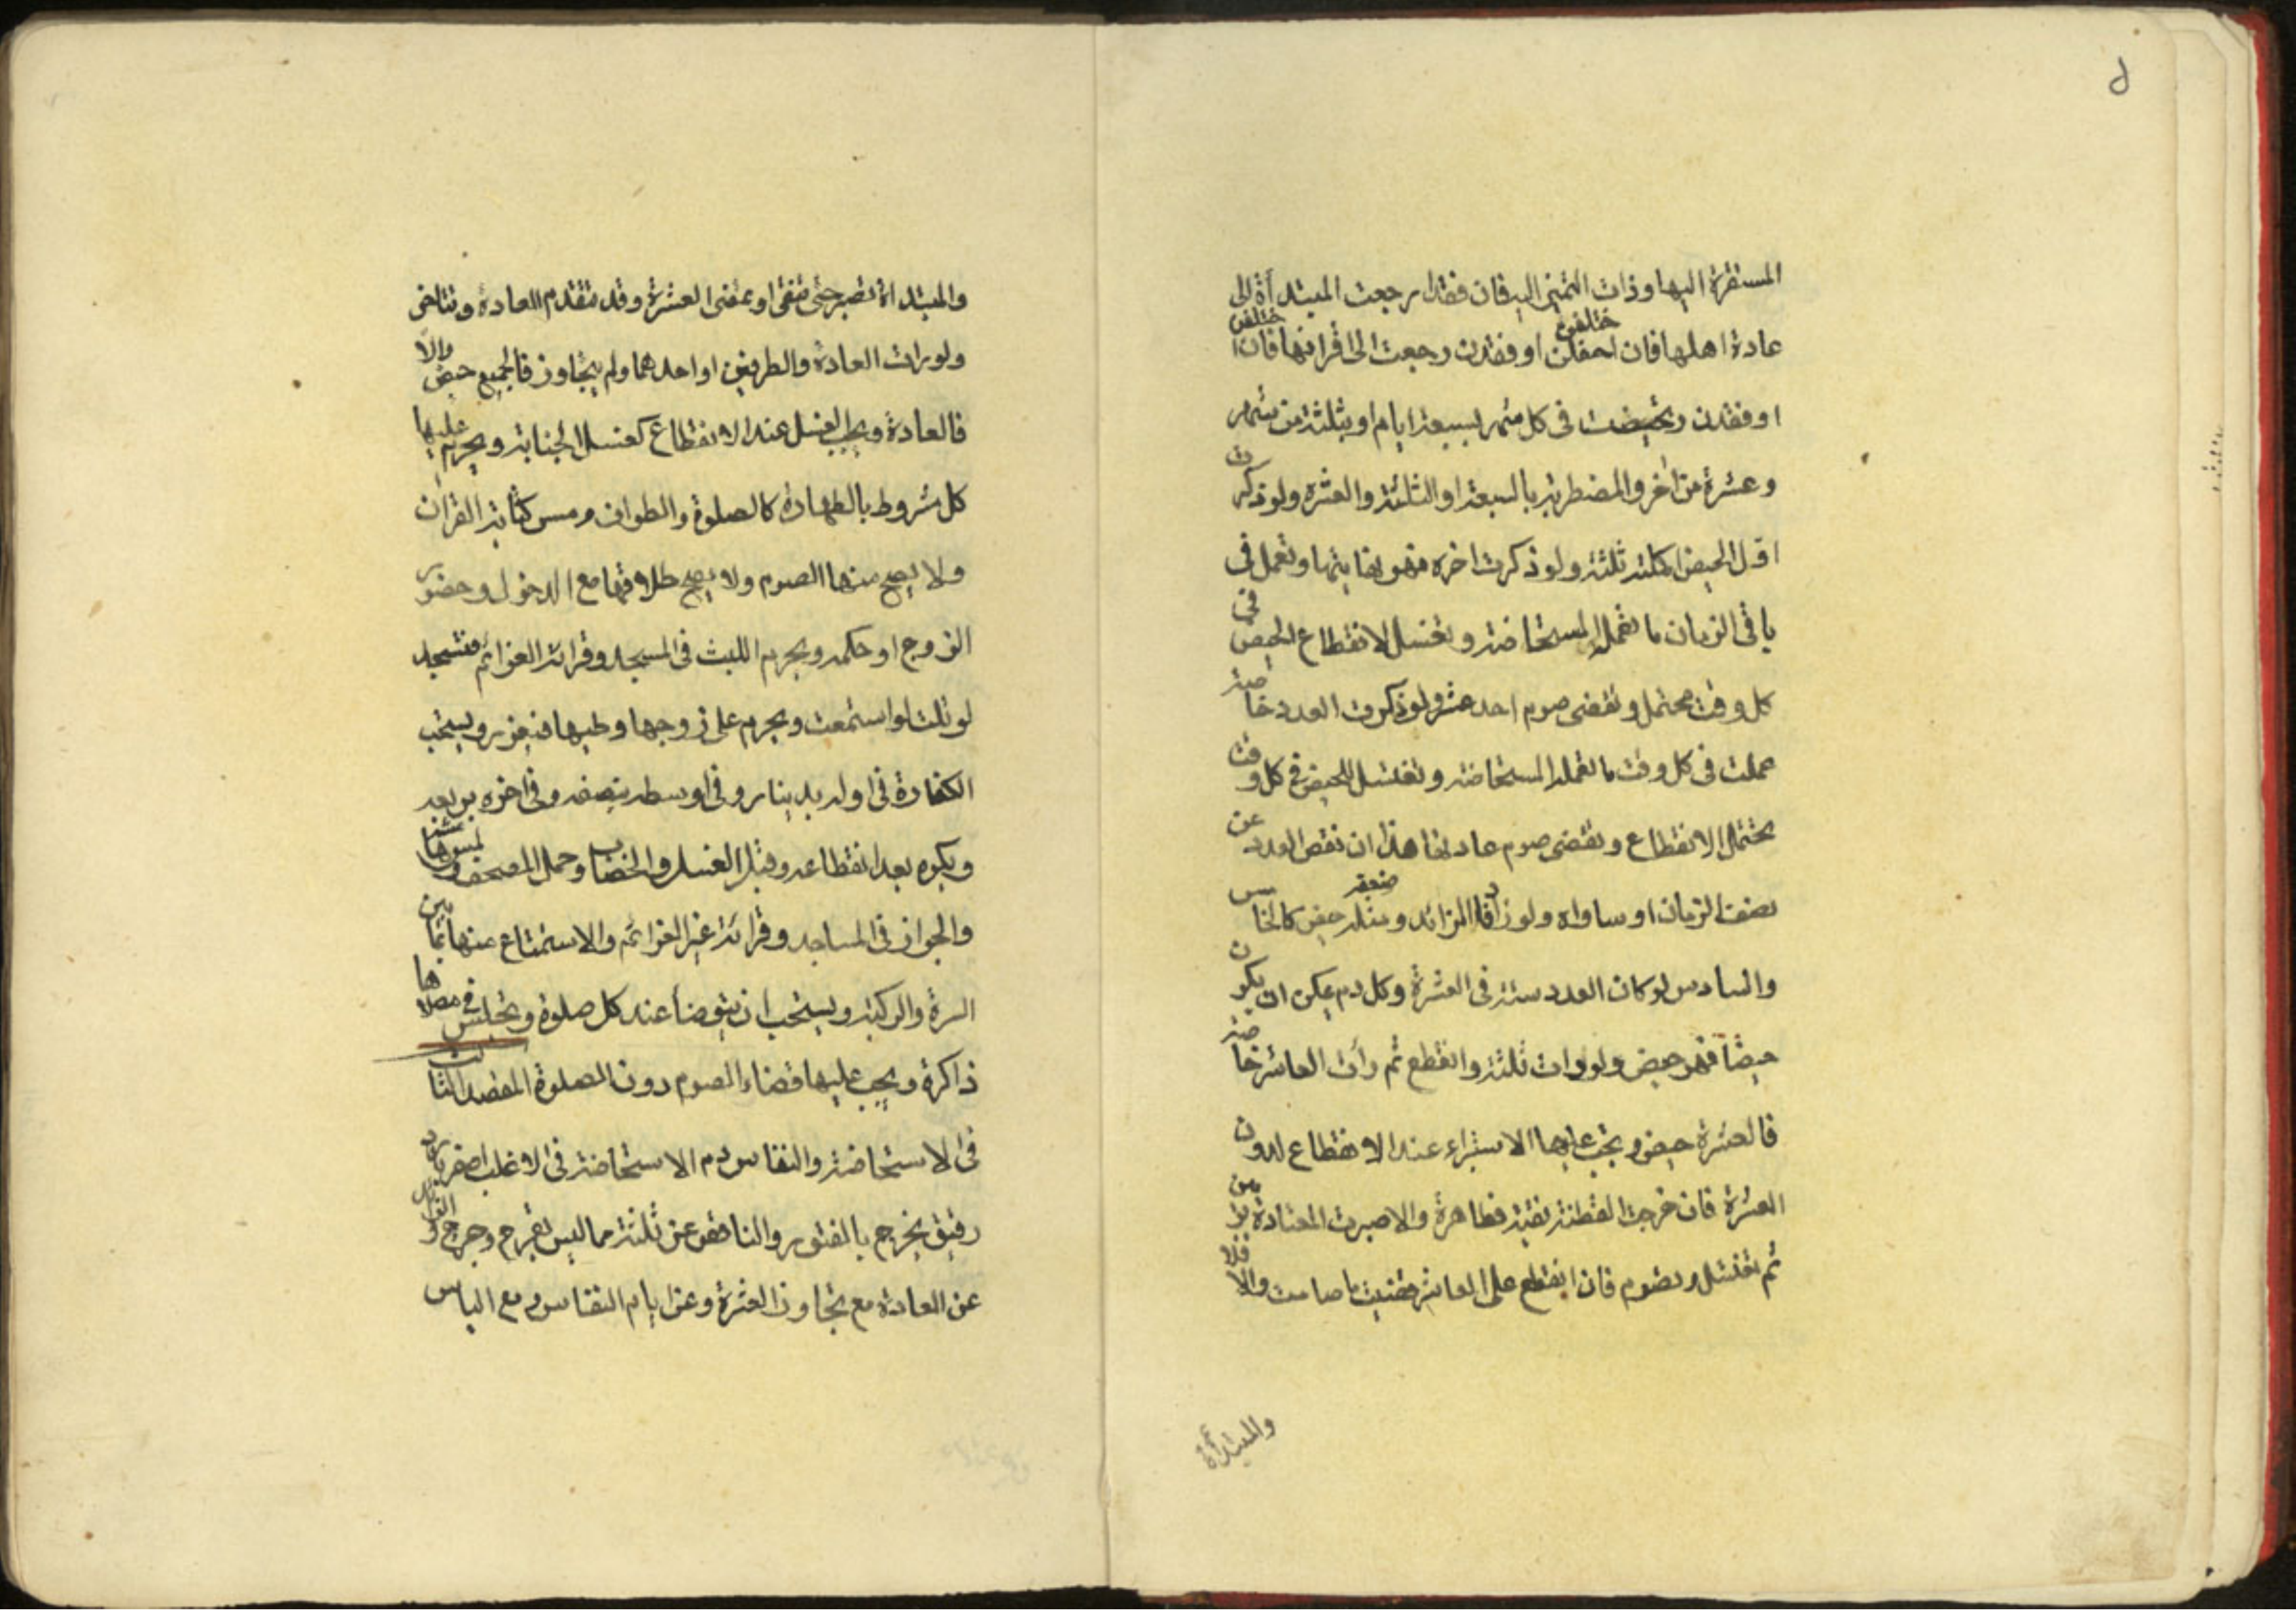 المستقرة اليها وذات التمييز اليه فان فقدا رجعت المبتدأة الى
عادة اهلها فان اختلفن او فقدن رجعت الى اقرانها فان اختلفن
او فقدن تحيضت فى كل شهر بسبعة ايام او بثلثة من شهر
وعشرة من اخر والمضطربة بالسبعة او الثلثة والعشرة ولو ذكرت
اول الحيض اكملته ثلثة ولو ذكرت اخره فهو نهايتها وتعمل فى
باقى الزمان ما تعمله المستحاضة وتغتسل لانقطاع الحيض فى
كل وقت محتمل وتقضى صوم احد عشر ولو ذكرت العدد خاصة
عملت فى كل وقت ما تعمله المستحاضة وتغتسل للحيض فى كل وقت
يحتمل الانقطاع وتقضى صوم عادتها هذا ان نقص العدد عن
نصف الزمان او ساواه ولو زاد فالزائد وضعفه ومثله حيض كالخامس
والسادس لو كان العدد ستة فى العشرة وكل دم يمكن ان يكون
حيضا فهو حيض ولو رات ثلثة وانقطع ثم رأت العاشر خاصة
فالعشرة حيض ويجب عليها الاستبراء عند الانقطاع لدون
العشرة فان خرجت القطنة نقية فطاهرة والا صبرت المعتادة يومين
ثم تغتسل وتصوم فان انقطع على العاشر قضيت ما صامت والا فلا
والمبتدأة
والمبتداة تصبر حتى تنقى او تمضى العشرة وقد تتقدم العادة وتتاخر
ولو رات العادة والطرفين او احدهما ولم يتجاوز فالجميع حيض والا
فالعادة ويجب الغسل عند الانقطاع كغسل الجنابة ويحرم عليها
كل مشروط بالطهارة كالصلوة والطواف ومس كتابة القران
ولا يصح منها الصوم ولا يصح طلاقها مع الدخول وحضور
الزوج او حكمه ويحرم اللبث فى المسجد وقرائة العزائم فتسجد
لو تلت او استمعت ويحرم على زوجها وطيها فيعزر ويستحب
الكفارة فى اوله بدينار وفى اوسطه بنصفه وفى اخره بربعه
ويكره بعد انقطاعه وقبل الغسل والخضاب وحمل المصحف ولمس هامشه
والجواز فى المساجد وقرائة غير العزائم والاستمتاع منها بما بين
السرة والركبة ويستحب ان يتوضأ عند كل صلوة وتجلس فى مصلاها
ذاكرة ويجب عليها قضاء الصوم دون الصلوة المقصد الثالث
فى الاستحاضة والنفاس دم الاستحاضة فى الاغلب اصفر بارد
رقيق يخرج بالفتور والناقص عن ثلثة مما ليس بقرح وجرح والزائد
عن العادة مع تجاوز العشرة وعن ايام النفاس ومع الياس